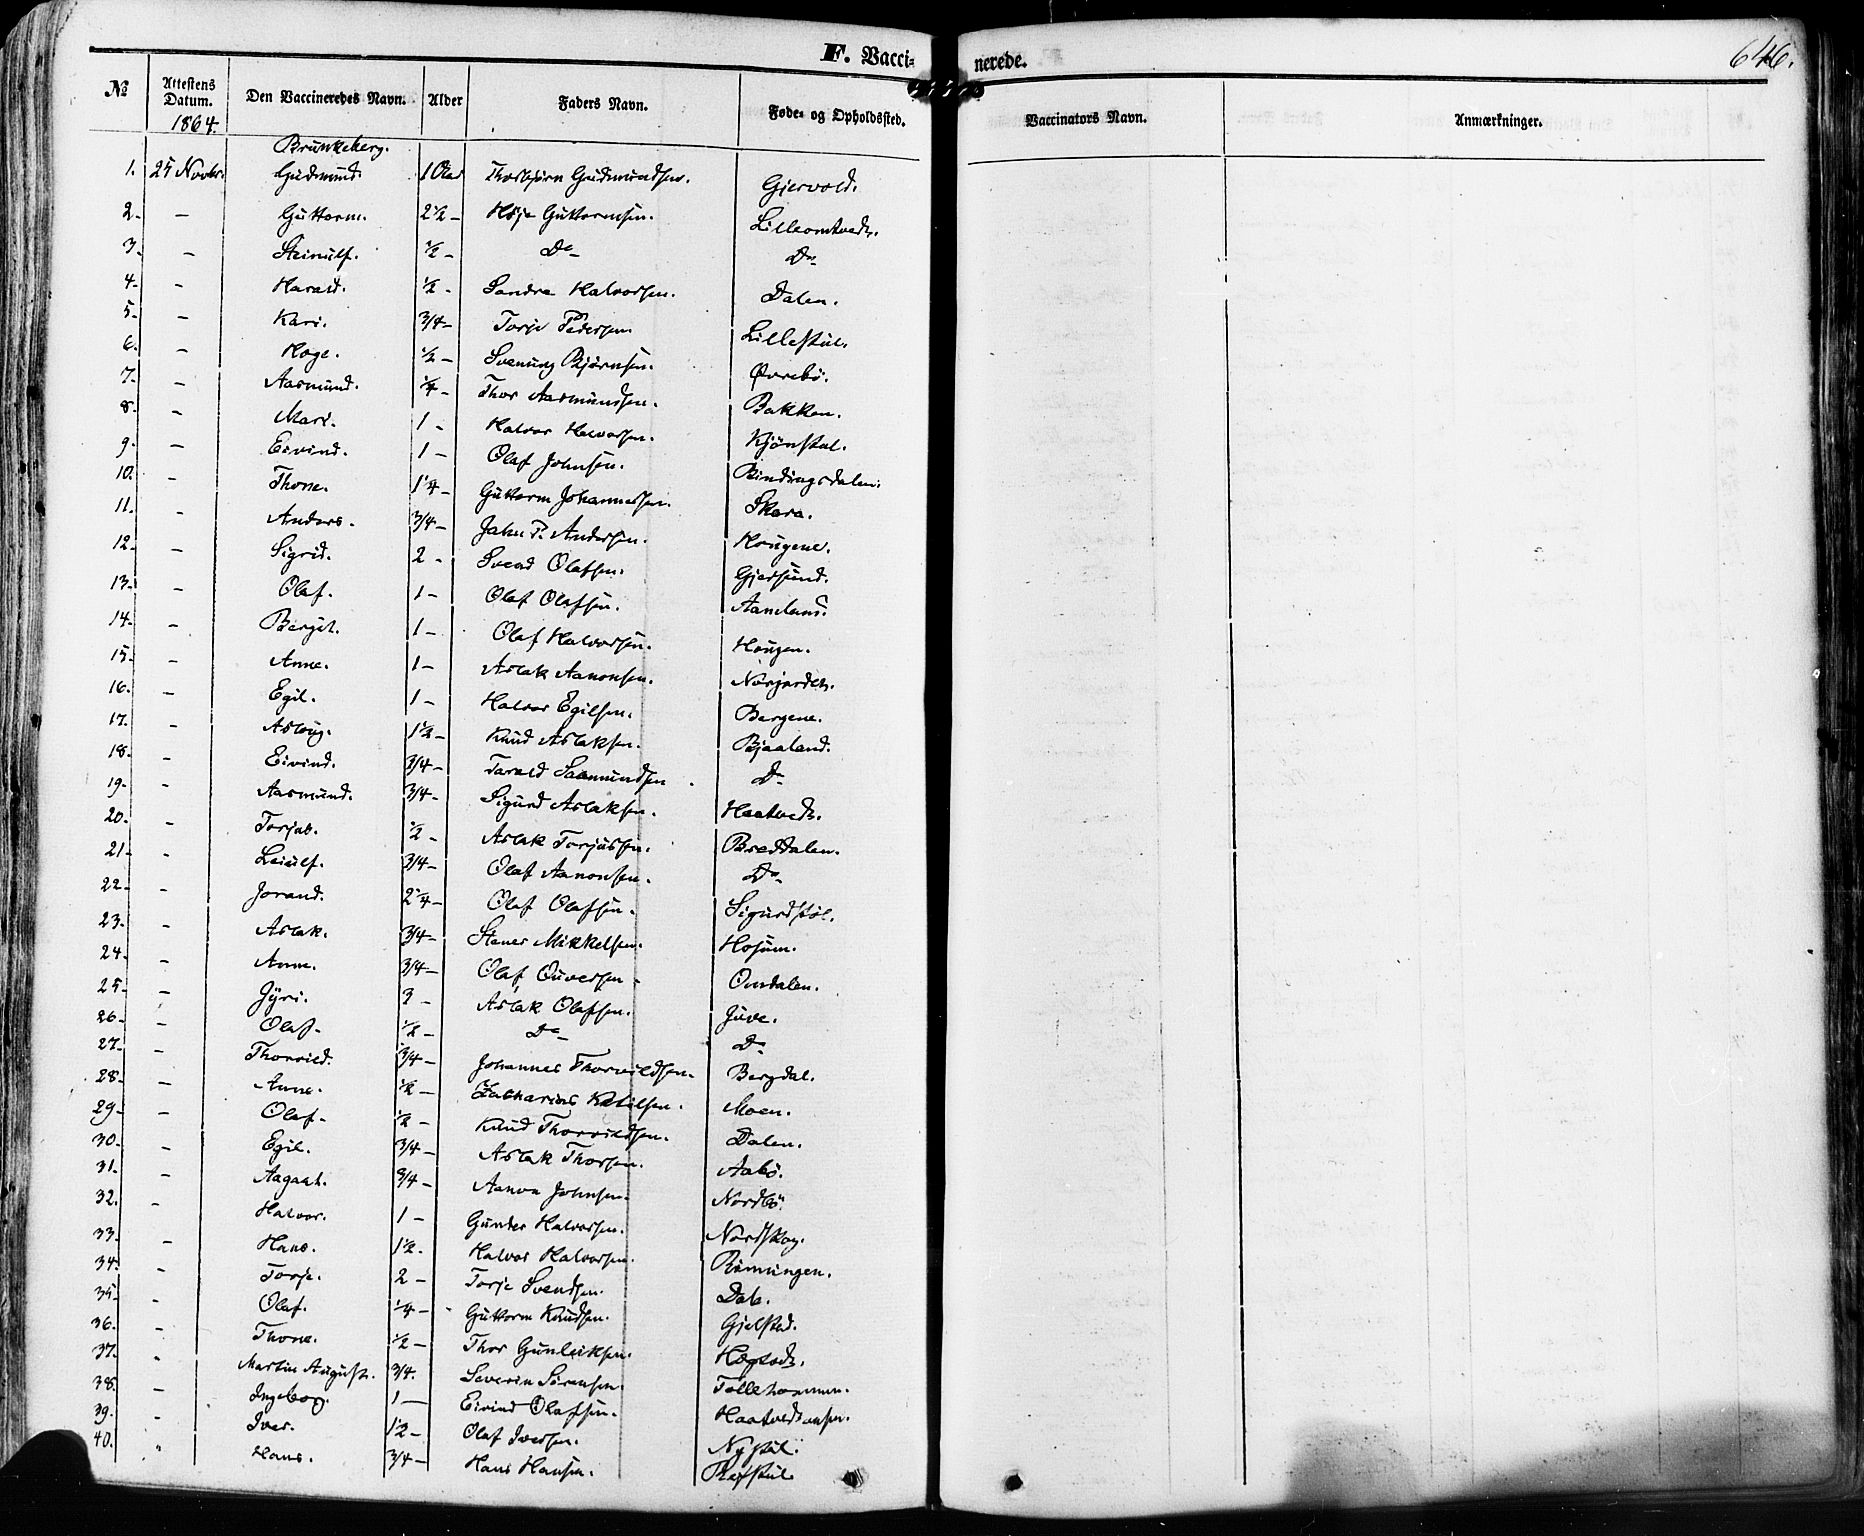 F. Vacci- nerede. 646.
№ Attestens Datum. Den Vaccineredes Navn. Alder Faders Navn. Føde- og Opholdssted. Vaccinators Navn. Anmærkninger.
1864.
Brunkeberg.
1. 25 Novbr. Gudmund. 1 Thorbjørn Gudmundsen. Gjervold.
2. - Guttorm. 2½ - Høje Guttormsen. Lilleomtvedt.
3. - Steinulf. ½ - Do - Do
4. - Harald. ½ - Sondre Halvorsen. Dalen.
5. - Kari. 3/4 - Torje Pedersen Lillestul.
6. - Hoge. ½ - Svenung Bjørnsen. Øvrebö.
7. - Aasmund. ¼ - Thor Aasmundsen. Bakken.
8. - Mari. 1 - Halvor Halvorsen. Kjönstul.
9. - Eivind. 1 - Olaf Johnsen. Bindingsdalen.
10. - Thone. 1¼ - Guttorm Johannessen. Skara.
11. - Anders. 3/4 - John P. Andersen. Hougene.
12. - Sigrid. 2 - Svend Olafsen. Gjersund.
13. - Olaf. 1 - Olaf Olafsen. Aamlans.
14. - Bergit. 1 - Olaf Halvorsen. Hougen.
15. - Anne. 1 - Aslak Aanonsen. Norjordet.
16. - Egil. 1 - Halvor Egilsen. Bergene.
17. - Aslaug. 1½ - Knud Aslaksen. Bjaaland.
18. - Eivind. 3/4 - Tarald Saamundsen. Do
19. - Aasmund. 3/4 - Sigurd Aslaksen. Haatvedt.
20. - Torjus. ½ - Aslak Torjussen. Breddalen.
21. - Leiulf. 3/4 - Olaf Aanonsen. Do
22. - Jorand. 2¼ - Olaf Olafsen. Sigurdstöl.
23. - Aslak. 3/4 - Stener Mikkelsen. Hosum.
24. - Anne. 3/4 - Olaf Ouversen - Omdalen.
25. - Jyri. 3 - Aslak Olafsen. Juve.
26. - Olaf - ½ - Do - Do
27. - Thorvild. 3/4 - Johannes Thorvildsen. Bergdal.
28. - Anne. ½ - Zacharias Ketilsen. Moen.
29. - Olaf - ½ - Knud Thorvildsen. Dalen.
30. - Egil. 3/4 - Aslak Thorsen. Aabö.
31. - Aagaat. 3/4 - Aanon Johnsen. Nordbö.
32. - Halvor. 1 - Gunder Halvorsen. Nordskog.
33. - Hans. 1½. Halvor Halvorsen. Römingen.
34. - Torje. 2 - Torje Svendsen. Dale.
35. - Olaf. ¼ - Guttorm Knudsen. Gjelstad.
36. - Thone. ½ - Thor Gunleiksen.
37. - Martin August. 3/4. Severin Sörensen.
38. - Ingeborg. 1 - Eivind Olafsen.
39. - Iver. 1½ - Olaf Iversen. Nystul.
40. " Hans. 3/4 - Hans Hansen. Refstul